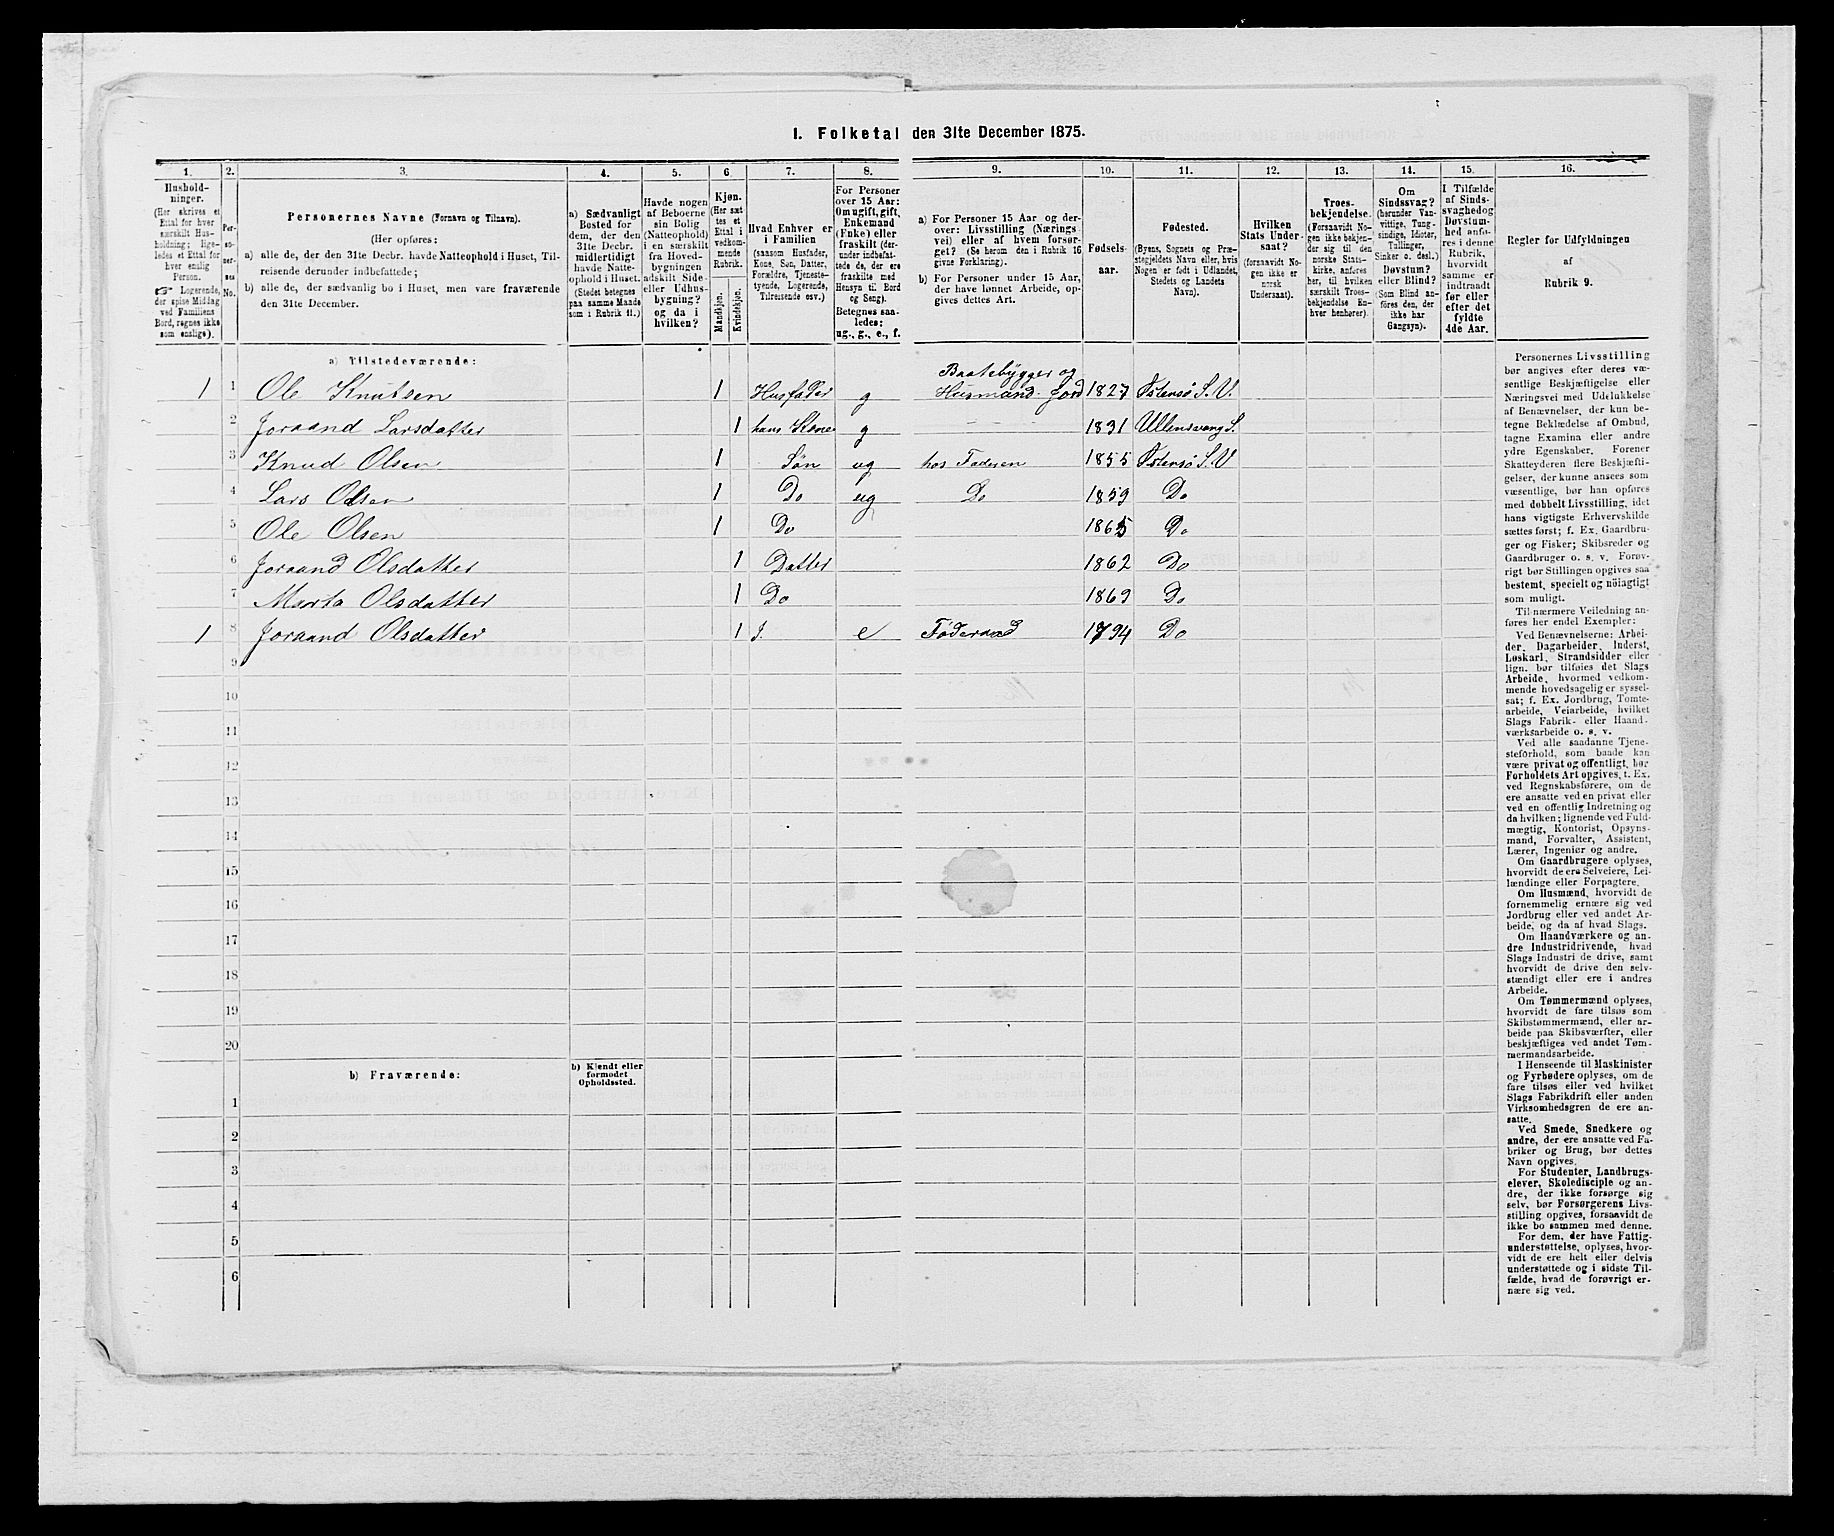 1. Folketal den 31te December 1875.
1.
Husholdninger.
(Her skrives et
Ettal for hver
særskilt Husholdning; ligeledes
et Ettal for
hver enlig
Person.
☞ Logerende,
der spise Middag
ved Familiens
Bord, regnes ikke
som enslige).
2.
Personernes
No.
3.
Personernes Navne (Fornavn og Tilnavn).
(Her opføres:
a) alle de, der den 31te Decbr. havde Natteophold i Huset, Tilreisende
derunder indbefattede;
b) alle de, der sædvanlig bo i Huset, men vare fraværende
den 31te December.
4.
a) Sædvanligt
Bosted for
dem, der den
31te Decbr.
midlertidigt
havde Natteophold
i Huset.
(Stedet betegnes
paa samme Maade
som i Rubrik 11.)
5.
Havde nogen
af Beboerne
sin Bolig
(Natteophold)
i en særskilt
fra Hovedbygningen
adskilt Side-
eller Udhusbygning?
og da i
hvilken?
6.
Kjøn.
(Her sættes
et
Ettal i
vedkommende
Rubrik.
Mandkjøn.
Kvindekjøn.
7.
Hvad Enhver er
i Familien
(saasom Husfader,
Kone, Søn, Datter,
Forældre, Tjenestetyende,
Logerende,
Tilreisende osv.)
8.
For Personer
over 15 Aar:
Om ugift, gift,
Enkemand
(Enke) eller
fraskilt (derunder
indbefattede
de, der ere
fraskilte med
Hensyn til Bord
og Seng).
Betegnes saaledes:
ug., g., e., f.
9.
a) For Personer 15 Aar og derover:
Livsstilling (Næringsvei)
eller af hvem forsørget?
(Se herom den i Rubrik 16
givne Forklaring).
b) For Personer under 15 Aar,
der have lønnet Arbeide, opgives
dettes Art.
10.
Fødselsaar.
11.
Fødested.
(Byens, Sognets og Præstegjeldets
Navn eller, hvis
Nogen er født i Udlandet,
Stedets og Landets
Navn).
12.
Hvilken
Stats Undersaat?
(foraavidt Nogen
ikke er
norsk
Undersaat).
13.
Troesbekjendelse.
(Forsaavidt Nogen
ikke bekjender
sig til den
norske Statskirke,
anføres
her, til hvilken
særskilt Troesbekjendelse
Enhver
henhører).
14.
Om
Sindssvag?
(herunder Vanvittige,
Tungsindige,
Idioter,
Tullinger,
Sinker o. desl.)
Døvstum?
eller Blind?
(Som Blind anføres
den, der
ikke har
Gangsyn).
15.
I Tilfælde
af Sindssvaghed
og
Døvstumhed
anføres
i denne
Rubrik,
hvorvidt
samme er
indtraadt
før eller
efter det
fyldte
4de Aar.
16.
Regler for Udfyldningen
af
Rubrik 9.
a) Tilstedeværende:
1 1 Ole Knutsen 1 Husfader g Baatebygger og Husmand Jord 1827 Østensø S. V.
2 Joraand Larsdatter 1 hans Kone g 1831 Ullensvang S.
3 Knud Olsen 1 Søn ug hos Faderen 1855 Østensø S. V
4 Lars Olsen 1 Do ug Do 1859 Do
5 Ole Olsen 1 Do 1865 Do
6 Joraand Olsdatter 1 Datter 1862 Do
7 Marta Olsdatter 1 Do 1869 Do
1 8 Joraand Olsdatter 1 J. e Føderaad 1794 Do
9
10
11
12
13
14
15
16
17
18
19
20
b) Fraværende:
b) Kjendt eller
formodet
Opholdssted.
1
2
3
4
5
6
Personernes Livsstilling
bør angives efter deres væsentlige
Beskjæftigelse eller
Næringsvei med Udelukkelse
af Benævnelser, der kun betegne
Beklædelse af Ombud,
tagne Examina eller andre
ydre Egenskaber. Forener
Skatteyderen flere Beskjæftigelser,
der kunne ansees som
væsentlige, bør han opføres
med dobbelt Livsstilling, idet
hans vigtigste Erhvervskilde
sættes først; f. Ex. Gaardbruger
og Fisker; Skibsreder og
Gaardbruger o. s. v. Forøvrigt
bør Stillingen opgives saa
bestemt, specielt og nøiagtigt
som muligt.
Til nærmere Veiledning anføres
her endel Exempler:
Ved Benævnelserne: Arbeider,
Dagarbeider, Inderst,
Løskarl, Strandsidder eller
lign. bør tilføies det Slags
Arbeide, hvormed vedkommende
hovedsagelig er sysselsat;
f. Ex. Jordbrug, Tomtearbeide,
Veiarbeide, hvilket
Slags Fabrik- eller Haandværksarbeide
o. s. v.
Ved alle saadanne Tjenesteforhold,
som baade kan
være privat og offentligt, bør
Forholdets Art opgives, t. Ex.
ved Regnskabsførere, om de
ere ansatte ved en privat eller
ved en offentlig Indretning og
da hvilken; lignende ved Fuldmægtig,
Kontorist, Opsynsmand,
Forvalter, Assistent,
Lærer, Ingeniør og andre.
Om Gaardbrugere oplyses,
hvorvidt de ere Selveiere, Leilændinge
eller Forpagtere.
Om Husmænd, hvorvidt de
fornemmelig ernære sig ved
Jordbrug eller ved andet Arbeide,
og da af hvad Slags.
Om Haandværkere og andre
Industridrivende, hvad
Slags Industri de drive, samt
hvorvidt de drive den selvstændigt
eller ere i andres
Arbeide.
Om Tømmermænd oplyses,
hvorvidt de fare tilsøs som
Skibstømmermænd, eller arbeide
paa Skibsværfter, eller
beskjæftiges ved andet Tømmermandsarbeide.
I Henseende til Maskinister
og Fyrbødere oplyses, om de
fare tilsøs eller ved hvilket
Slags Fabrikdrift eller anden
Virksomhedsgren de ere ansatte.
Ved Smede, Snedkere og
andre, der ere ansatte ved Fabriker
og Brug, bør dettes
Navn opgives.
For Studenter, Landbrugselever,
Skoledisciple og andre,
der ikke forsørge sig
selv, bør Forsørgerens Livsstilling
opgives, forsaavidt de
ikke bo sammen med denne.
For dem, der have Fattigunderstøttelse,
oplyses, hvorvidt
de ere helt eller delvis
understøttede og i sidste Tilfælde,
hvad de forøvrigt ernære
sig ved.